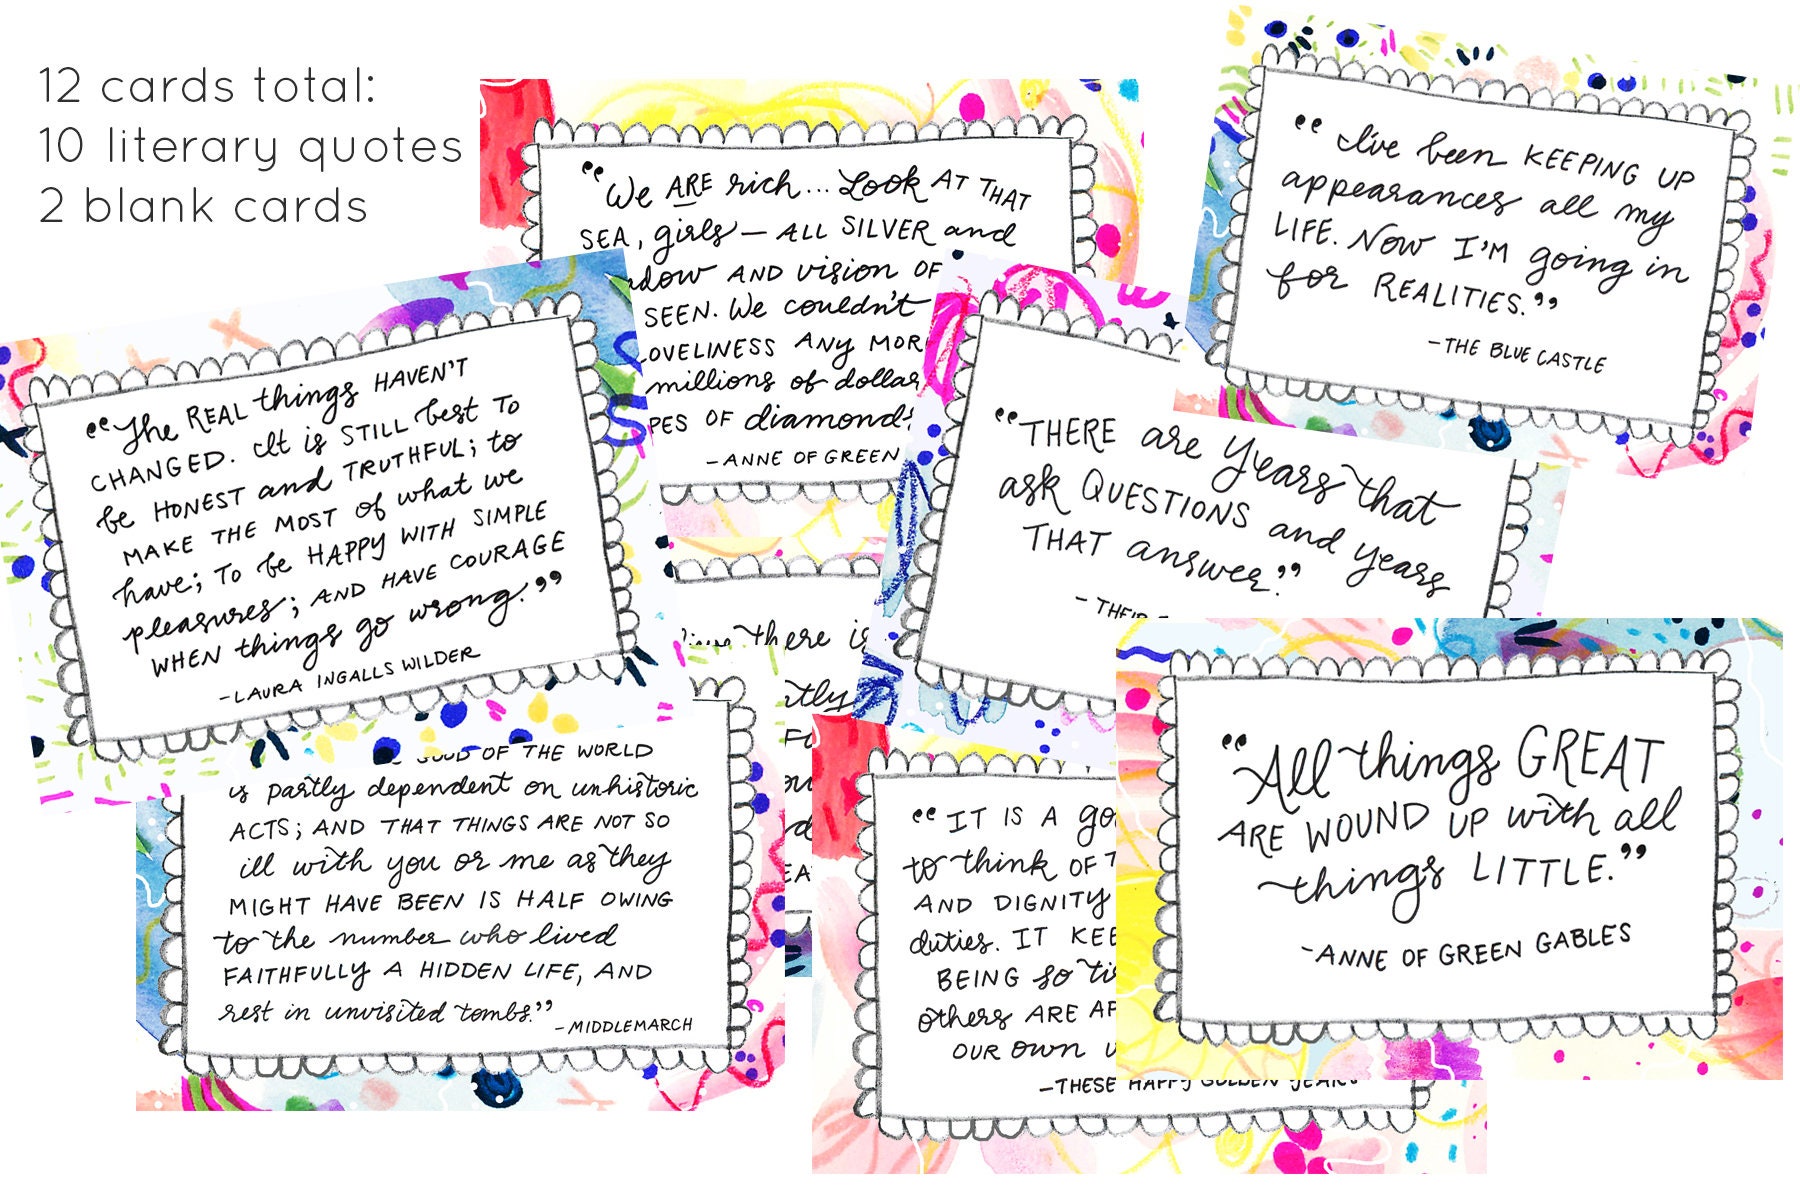 12 cards total:
10 literary quotes
2 blank cards
“We ARE rich... Look AT THAT
SEA, girls — ALL SILVER and
AND vision OF
SEEN. We couldn't
LOVELINESS ANY MOR
millions of dollar
PES OF diamonds
-ANNE OF GREEN
“I've been KEEPING UP
appearances all my
LIFE. Now I'M going in
for REALITIES.”
-THE BLUE CASTLE
“The REAL things HAVEN'T
CHANGED. It is STILL best TO
be HONEST and TRUTHFUL; to
MAKE THE MOST of what we
have; TO be HAPPY WITH SIMPLE
pleasures; AND HAVE COURAGE
WHEN things go wrong.”
-LAURA INGALLS WILDER
“THERE are years that
ask QUESTIONS and years
THAT answer.”
- THEIR
there is
GOOD OF THE WORLD
is partly dependent on unhistoric
ACTS; AND THAT THINGS ARE NOT SO
ill with you or me as they
MIGHT HAVE BEEN IS HALF OWING
to the number who lived
FAITHFULLY A HIDDEN LIFE, AND
rest in unvisited tombs.”
-MIDDLEMARCH
“IT IS A go
to think OF T
AND DIGNITY
duties. IT KEE
BEING so ti
others ARE AP
OUR own
-THESE HAPPY GOLDEN YEARS
“All things GREAT
ARE WOUND UP with all
things LITTLE.”
-ANNE OF GREEN GABLES